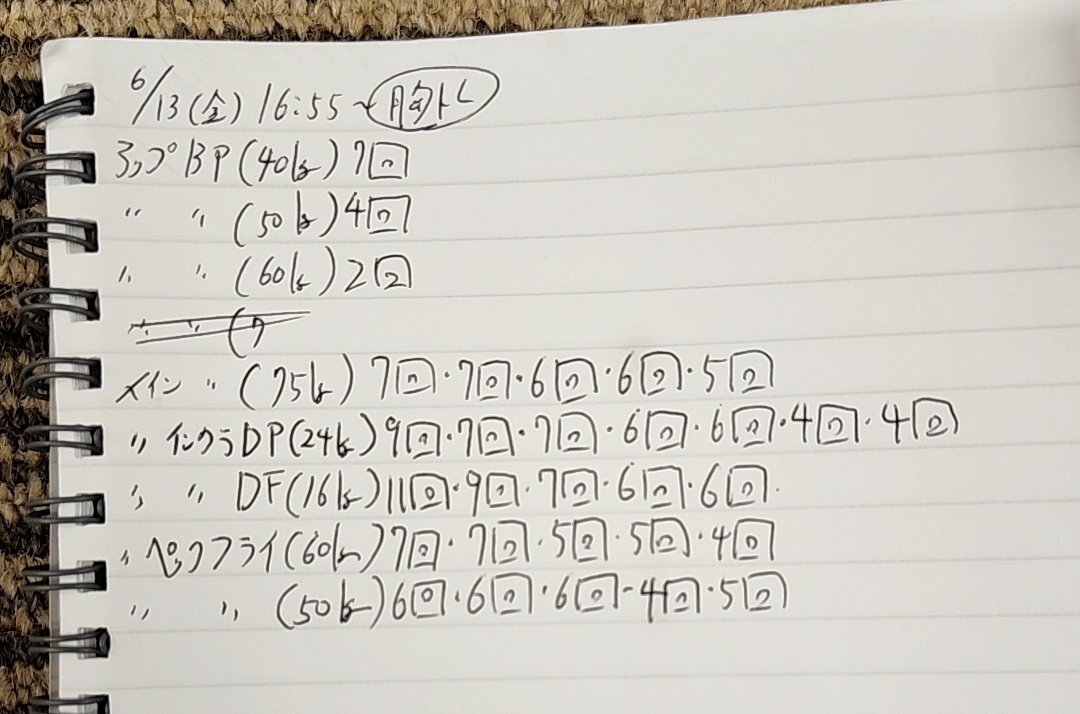 6/13(金) 16:55~胸トレ
アップBP(40kg)7回
〃 〃 (50kg)4回
〃 〃 (60kg)2回
〃 〃 (7
メイン 〃 (75kg) 7回・7回・6回・6回・5回
〃 インクラDP(24kg)9回・7回・7回・6回・6回・4回・4回
〃 〃 DF(16kg)11回・9回・7回・6回・6回.
〃 ペックフライ(60kg)7回・7回・5回・5回・4回
〃 〃 (50kg)6回・6回・6回・4回・5回